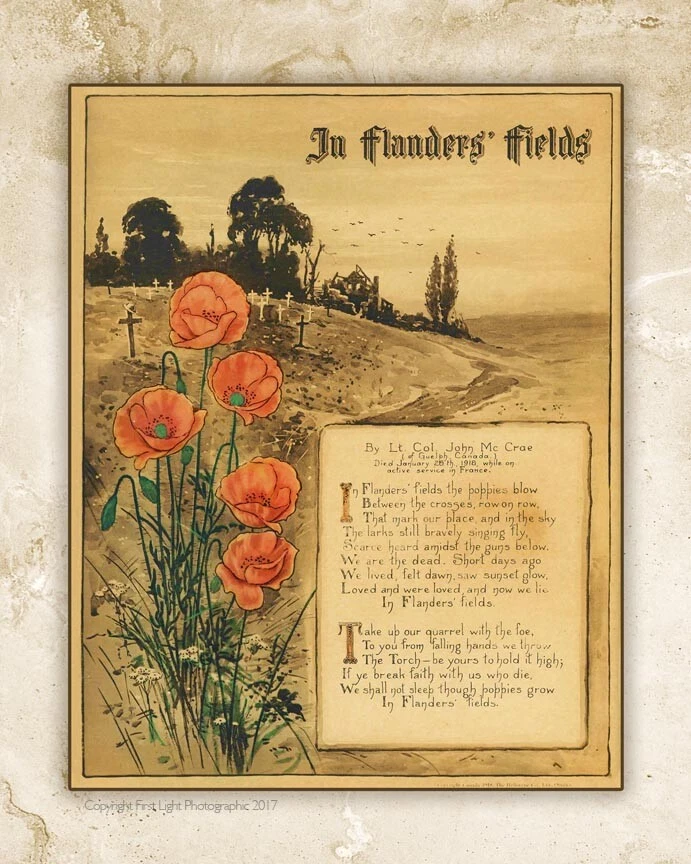 In Flanders' Fields
By Lt. Col. John Mc Crae
(of Guelph, Canada.)
Died January 28'th, 1918, while on
active service in France.
In Flanders' fields the poppies blow
Between the crosses, row on row,
That mark our place, and in the sky
The larks still bravely singing fly,
Scarce heard amidst the guns below.
We are the dead. Short days ago
We lived, felt dawn, saw sunset glow,
Loved and were loved, and now we lie
In Flanders' fields.
Take up our quarrel with the foe,
To you from falling hands we throw
The Torch—be yours to hold it high;
If ye break faith with us who die,
We shall not sleep though poppies grow
In Flanders' fields.
Canada 1918, The
Copyright First Light Photographic 2017